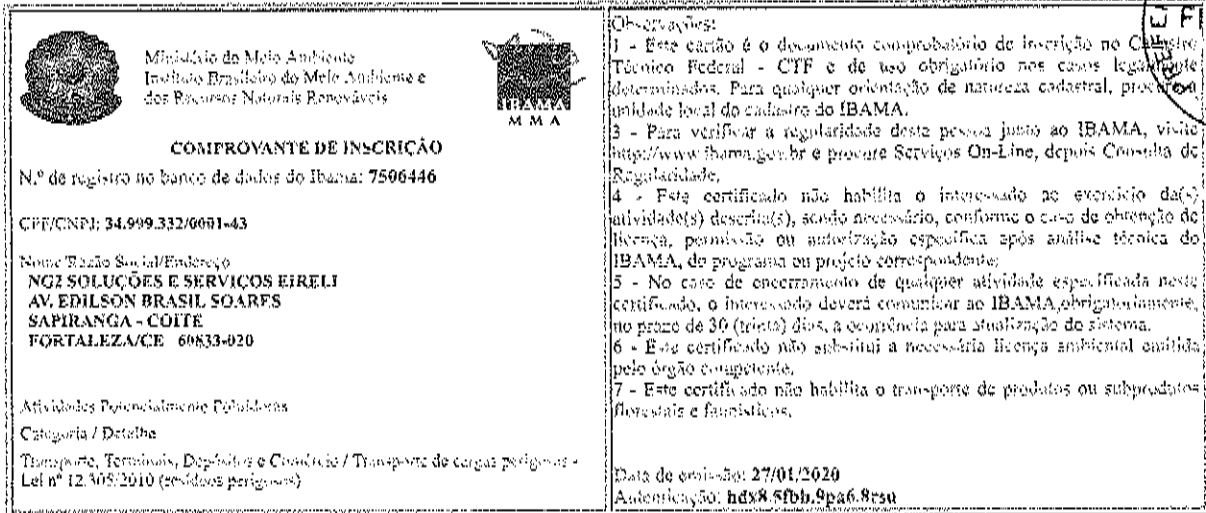 Ministério do Meio Ambiente
Instituto Brasileiro do Meio Ambiente e
dos Recursos Naturais Renováveis
IBAMA
M M A
COMPROVANTE DE INSCRIÇÃO
N.º de registro no banco de dados do Ibama: 7506446
CPF/CNPJ: 34.999.332/0001-43
Nome/Razão Social/Endereço
NG2 SOLUÇÕES E SERVIÇOS EIRELI
AV. EDILSON BRASIL SOARES
SAPIRANGA - COITE
FORTALEZA/CE 60833-020
Atividades Potencialmente Poluidoras
Categoria / Detalhe
Transporte, Terminais, Depósitos e Comércio / Transporte de cargas perigosas -
Lei nº 12.305/2010 (resíduos perigosos)
Observações:
1 - Este cartão é o documento comprobatório de inscrição no Cadastro
Técnico Federal - CTF e de uso obrigatório nos casos legalmente
determinados. Para qualquer orientação de natureza cadastral, procure a
unidade local do cadastro do IBAMA.
3 - Para verificar a regularidade desta pessoa junto ao IBAMA, visite
http://www.ibama.gov.br e procure Serviços On-Line, depois Consulta de
Regularidade.
4 - Este certificado não habilita o interessado ao exercício da(s)
atividade(s) descrita(s), sendo necessário, conforme o caso de obtenção de
licença, permissão ou autorização específica após análise técnica do
IBAMA, do programa ou projeto correspondente;
5 - No caso de encerramento de qualquer atividade especificada neste
certificado, o interessado deverá comunicar ao IBAMA,obrigatoriamente,
no prazo de 30 (trinta) dias, a ocorrência para atualização do sistema.
6 - Este certificado não substitui a necessária licença ambiental emitida
pelo órgão competente.
7 - Este certificado não habilita o transporte de produtos ou subprodutos
florestais e faunísticos.
Data de emissão: 27/01/2020
Autenticação: hdx8.5fbb.9pa6.8rsu